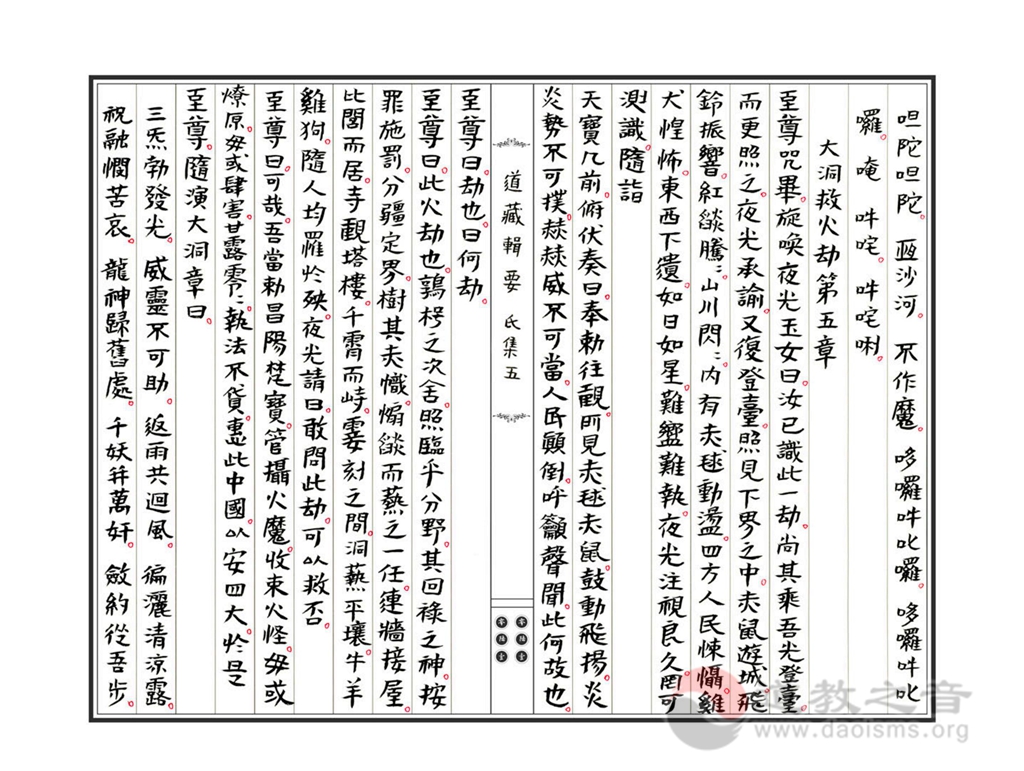 呾陀呾陀。 𢛢沙河。 不作魔。 哆囉吽叱囉。 哆囉吽叱
囉。 唵 吽咤。 吽咤唎。
大洞救火劫第五章
至尊咒畢。旋喚夜光玉女曰。汝已識此一劫。尚其乘吾光登臺。
而更照之。夜光承諭。又復登臺。照見下界之中。赤鼠遊城。飛
鈴振響。紅燄騰騰。山川閃閃。內有赤毬動盪。四方人民悚懾。雞
犬惶怖。東西下遺。如日如星。難盤難執。夜光注視良久。罔可
測識。隨詣
天寶几前。俯伏奏曰。奉勅往觀。所見赤毬赤鼠。鼓動飛揚。炎
炎勢不可撲。爀爀威不可當。人民顛倒。呼籲聲聞。此何故也。
道藏輯要 氐集五
至尊曰。劫也。曰何劫。
至尊曰。此火劫也。鶉枵之次舍。照臨乎分野。其回祿之神。按
罪施罰。分疆定界。樹其赤幟。煽燄而爇之。一任連牆接屋。
比閭而居。寺觀塔樓。千霄而峙。霎刻之間。洞爇平壤。牛羊
雞狗。隨人均罹於殃。夜光請曰。敢問此劫。可以救否。
至尊曰。可哉。吾當勅昌陽楚寶。管攝火魔。收束火怪。毋或
燎原。毋或肆害。甘露零零。執法不貸。惠此中國。以安四大。於是
至尊。隨演大洞章曰。
三炁勃發光。 威靈不可助。 返雨共迴風。 徧灑清涼露。
祝融憫苦哀。 龍神歸舊處。 千妖幷萬奸。 斂約從吾步。
道教之音
www.daoisms.org